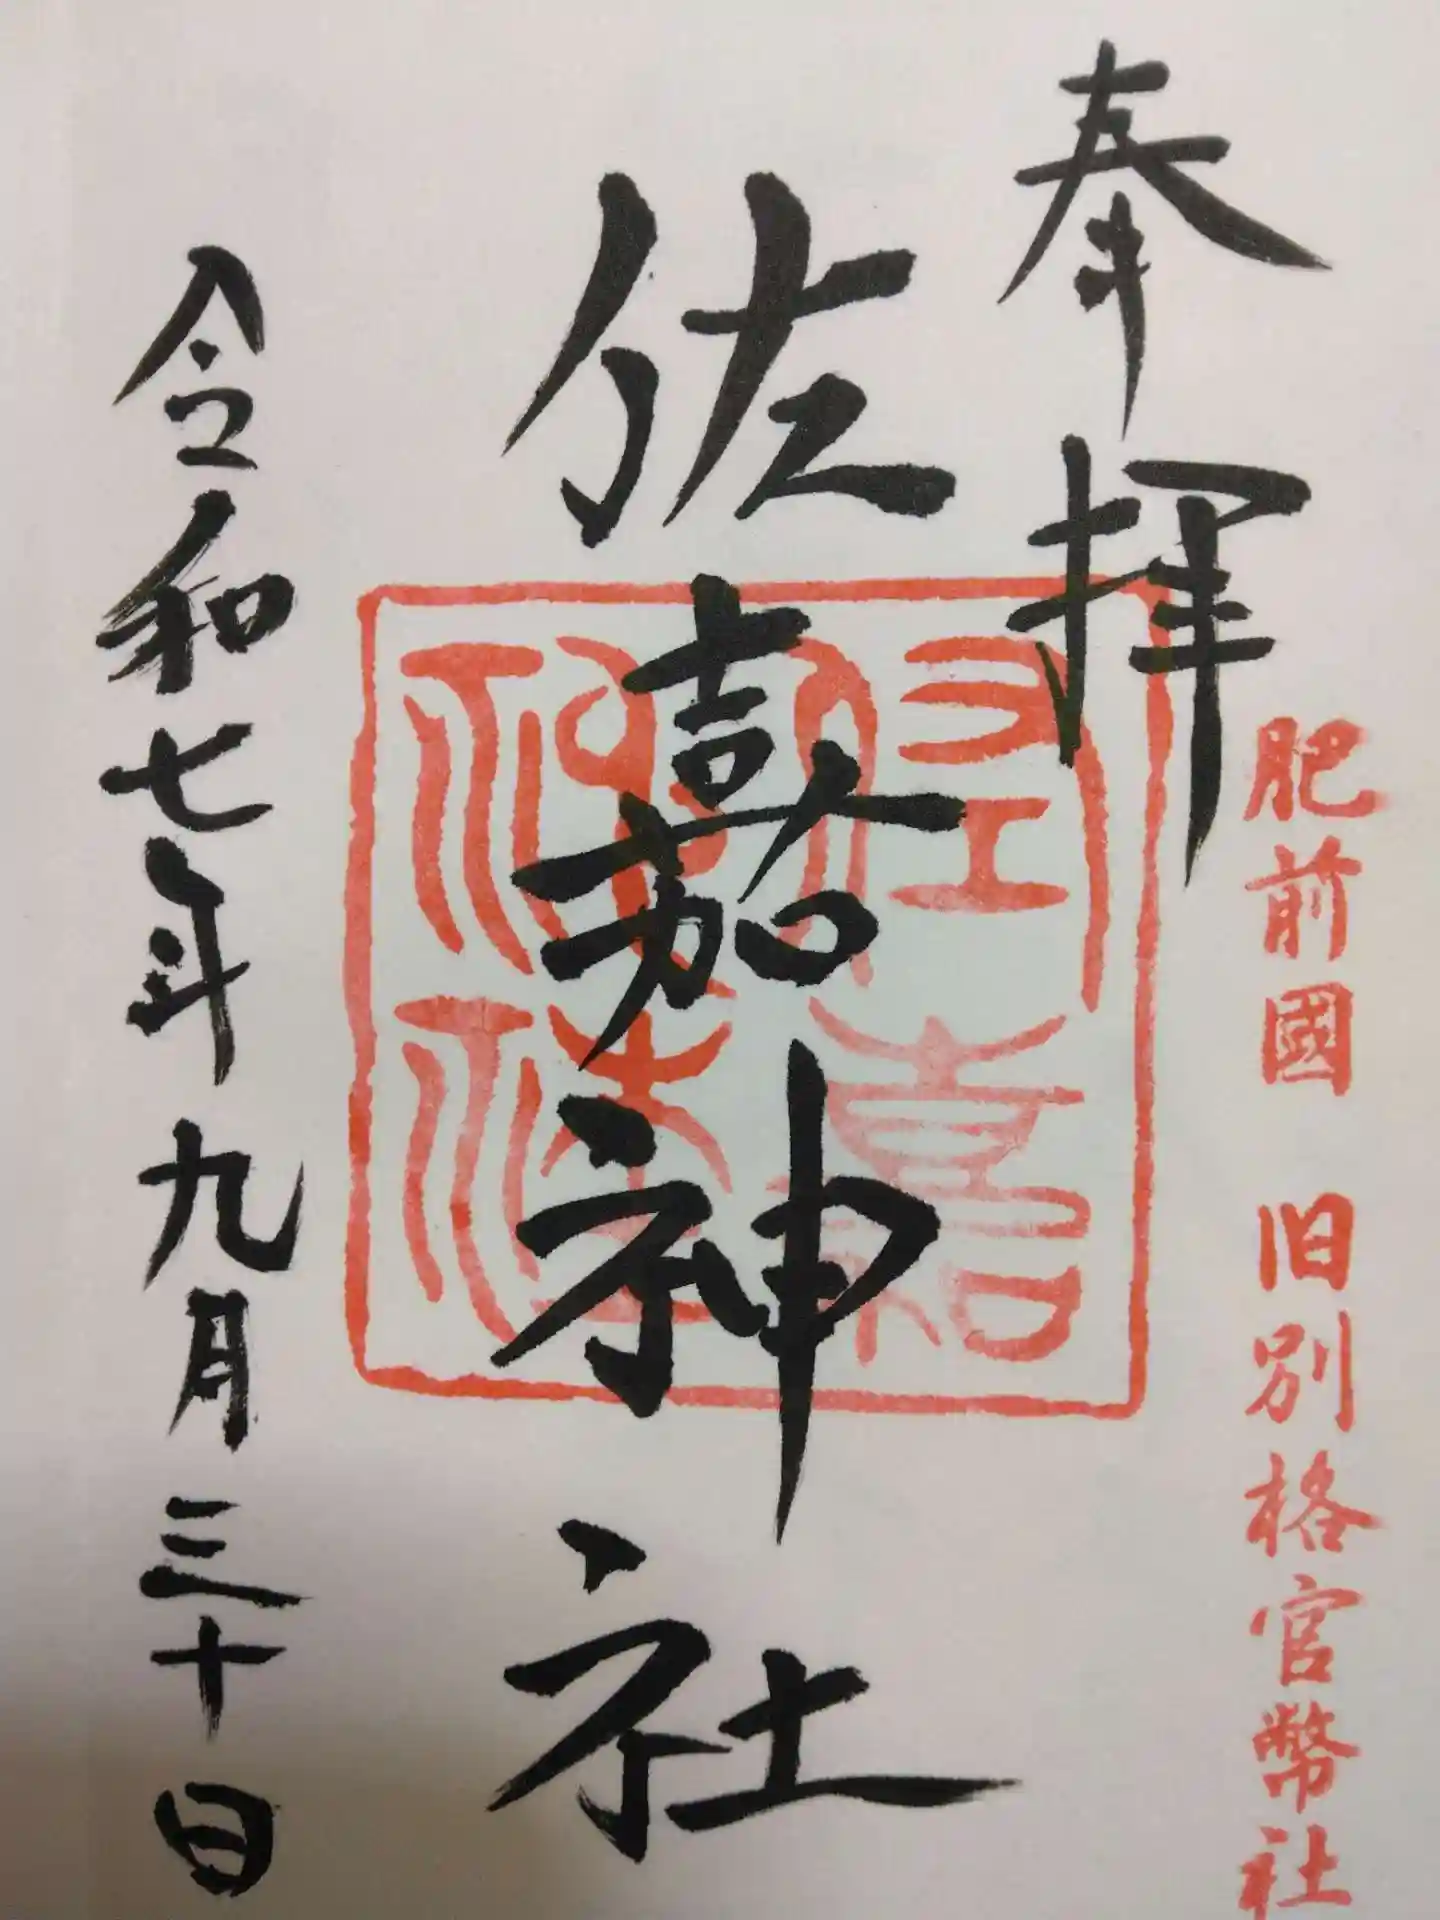 奉拝
肥前國 旧別格官幣社
佐嘉神社
佐嘉神社
令和七年九月三十日